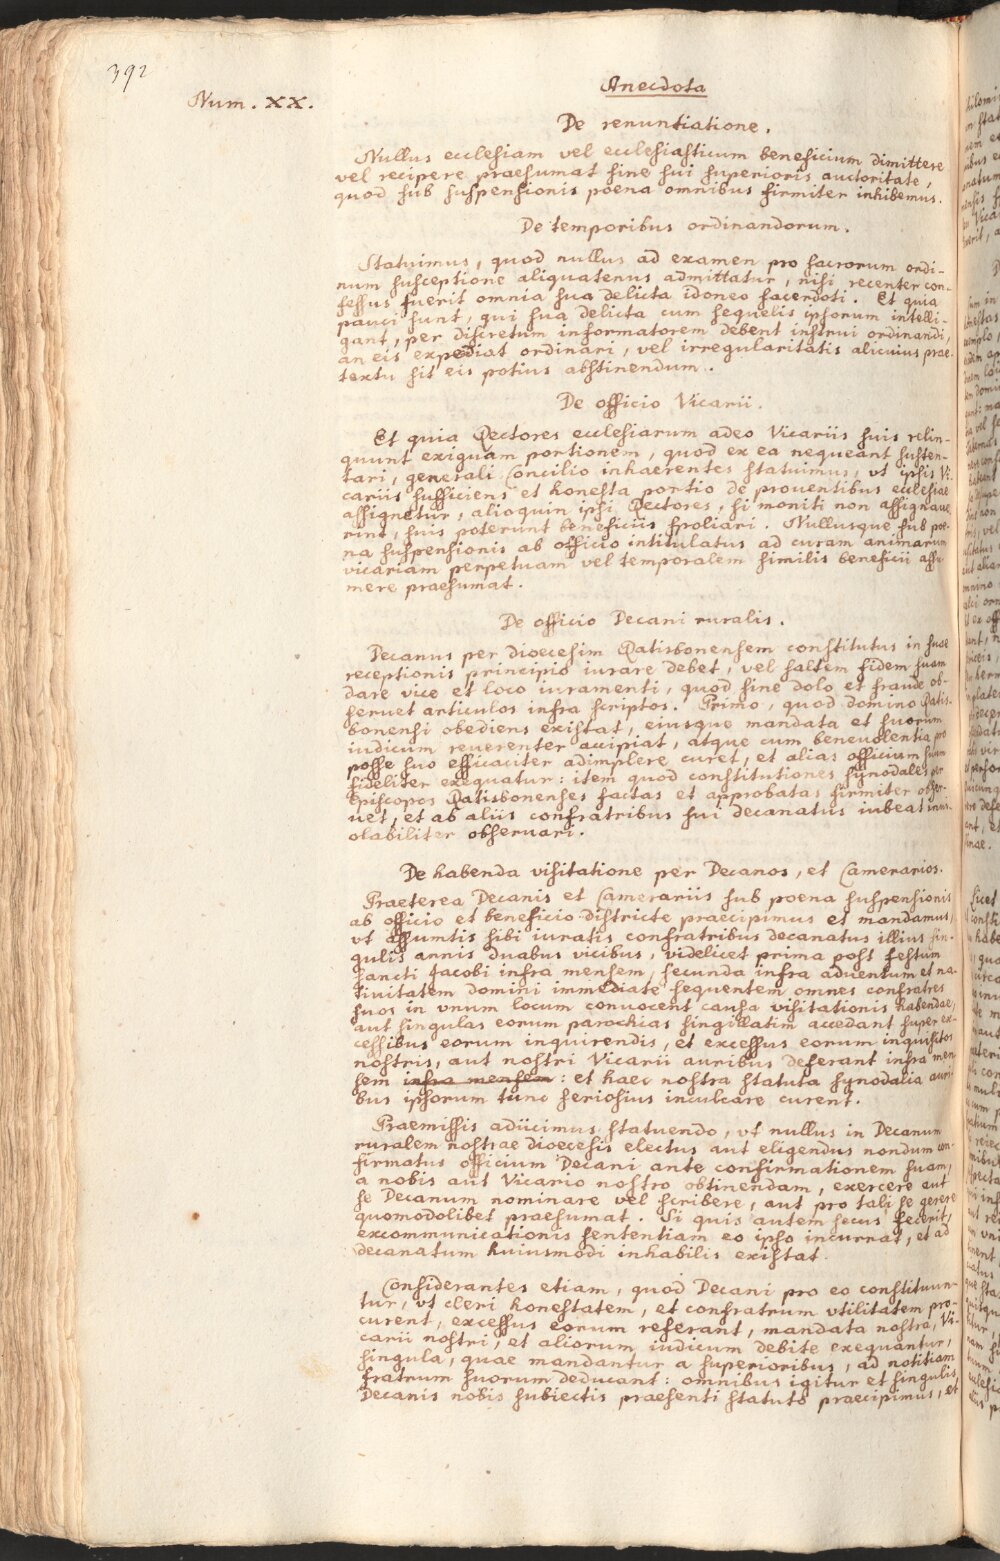 392
Num. XX.
Anecdota
De renuntiatione.
Nullus ecclesiam vel ecclesiasticum beneficium dimittere
vel recipere praesumat sine sui superioris auctoritate,
quod sub suspensionis poena omnibus firmiter inhibemus.
De temporibus ordinandorum.
Statuimus, quod nullus ad examen pro sacrorum ordi-
num susceptione aliquatenus admittatur, nisi recenter con-
fessus fuerit omnia sua delicta idoneo sacerdoti. Et quia
pauci sunt, qui sua delicta cum sequelis ipsorum intelli-
gant, per discretum informatorem debent instrui ordinandi,
an eis expediat ordinari, vel irregularitatis alicuius prae-
textu sit eis potius abstinendum.
De officio Vicarii.
Et quia Rectores ecclesiarum adeo Vicariis suis relin-
quunt exiguam portionem, quod ex ea nequeant susten-
tari, generali Concilio inhaerentes statuimus, vt ipsis Vi-
cariis sufficiens et honesta portio de prouentibus ecclesiae
assignetur, alioquin ipsi Rectores, si moniti non assignaue
rint, suis poterunt beneficiis spoliari. Nullusque sub poe-
na suspensionis ab officio intitulatus ad curam animarum
vicariam perpetuam vel temporalem similis beneficii assu
mere praesumat.
De officio Decani ruralis.
Decanus per dioecesim Ratisbonensem constitutus in suae
receptionis principio iurare debet, vel saltem fidem suam
dare vice et loco iuramenti, quod sine dolo et fraude ob-
seruet articulos infra scriptos. Primo, quod domino Ratis-
bonensi obediens existat, eiusque mandata et suorum
iudicum reuerenter accipiat, atque cum beneuolentia pro
posse suo efficaciter adimplere curet, et alias officium suum
fideliter exequatur: item quod constitutiones synodales per
Episcopos Ratisbonenses factas et approbatas firmiter obser-
uet, et ab aliis confratribus sui decanatus iubeat inui-
olabiliter obseruari.
De habenda visitatione per Decanos, et Camerarios.
Praeterea Decanis et Camerariis sub poena suspensionis
ab officio et beneficio districte praecipimus et mandamus,
vt assumtis sibi iuratis confratribus decanatus illius sin-
gulis annis duabus vicibus, videlicet prima post festum
sancti Jacobi infra mensem, secunda infra aduentum et na-
tiuitatem domini immediate sequentem omnes confratres
suos in vnum locum conuocent causa visitationis habendae,
aut singulas eorum parochias singillatim accedant super ex-
cessibus eorum inquirendis, et excessus eorum inquisitos
nostris, aut nostri Vicarii auribus deferant infra men
sem infra mensem: et haec nostra statuta synodalia auri
bus ipsorum tunc seriosius inculcare curent.
Praemissis adiicimus statuendo, vt nullus in Decanum
ruralem nostrae dioecesis electus aut eligendus nondum con-
firmatus officium Decani ante confirmationem suam,
a nobis aut Vicario nostro obtinendam, exercere aut
se Decanum nominare vel scribere, aut pro tali se gerere
quomodolibet praesumat. Si quis autem secus fecerit,
excommunicationis sententiam eo ipso incurrat, et ad
decanatum huiusmodi inhabilis existat.
Considerantes etiam, quod Decani pro eo constituun-
tur, vt cleri honestatem, et confratrum vtilitatem pro-
curent, excessus eorum referant, mandata nostra, Vi-
carii nostri, et aliorum iudicum debite exequantur,
singula, quae mandantur a superioribus, ad notitiam
fratrum suorum deducant: omnibus igitur et singulis
Decanis nobis subiectis praesenti statuto praecipimus, et